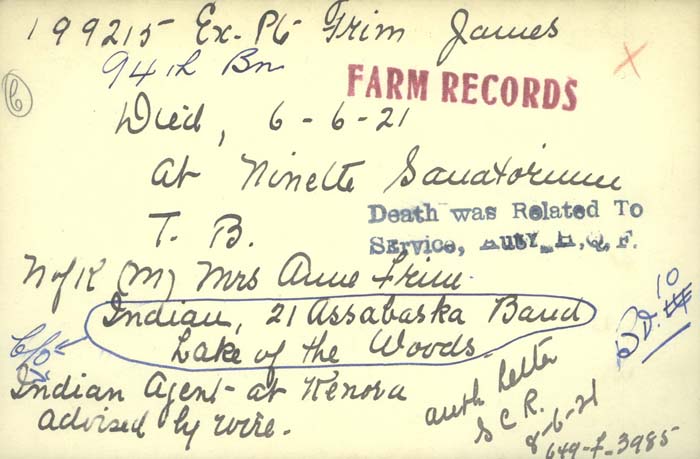 199215 Ex-Pte Frim James
94th Bn
C
FARM RECORDS
Died, 6-6-21
at Ninette Sanatorium
T. B.
Death was Related To
Service, Auty. H.Q.F.
N of K (M) Mrs Anne Frim.
Indian, 21 Assabaska Band
Lake of the Woods.
C/o
Indian Agent - at Kenora
advised by wire.
10
auth letter
S C R.
8-6-21
649-F-3985